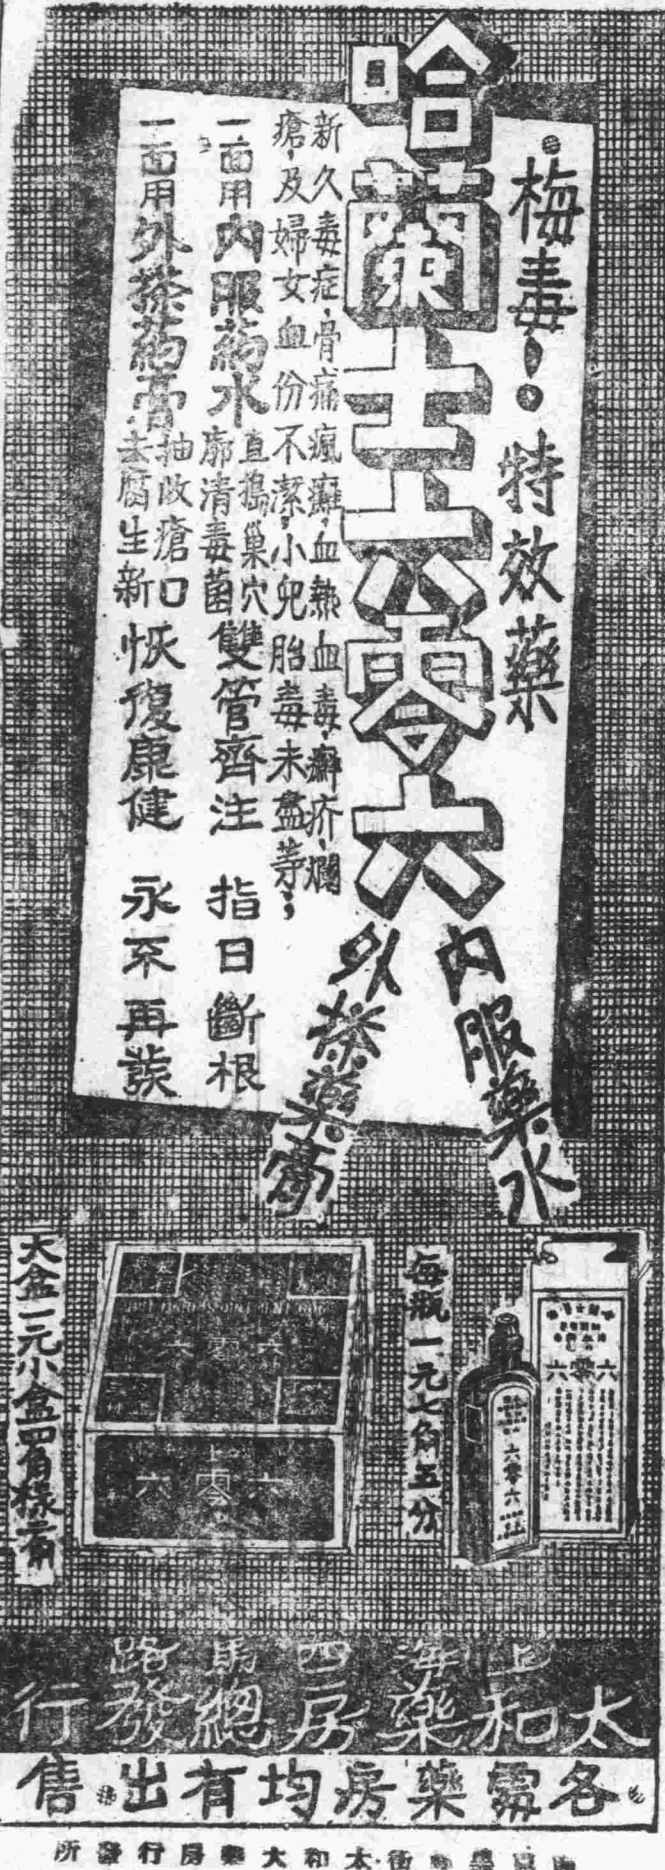 梅毒！特效藥
哈蘭士六零六
內服藥水
外搽藥膏
新久毒症，骨痛瘋癱，血熱血毒，癬疥，爛
瘡，及婦女血份不潔，小兒胎毒未盡等；
一面用內服葯水
直搗巢穴
廓清毒菌
雙管齊注 指日斷根
一面用外搽葯膏
抽收瘡口
去腐生新
恢復康健 永不再發
每瓶一元七角五分
六零六
六零六
大盒一元小盒四角樣二角
六零六
六零六
上海四馬路
太和藥房總發行
各電藥房均有出售
太和大藥房行發所